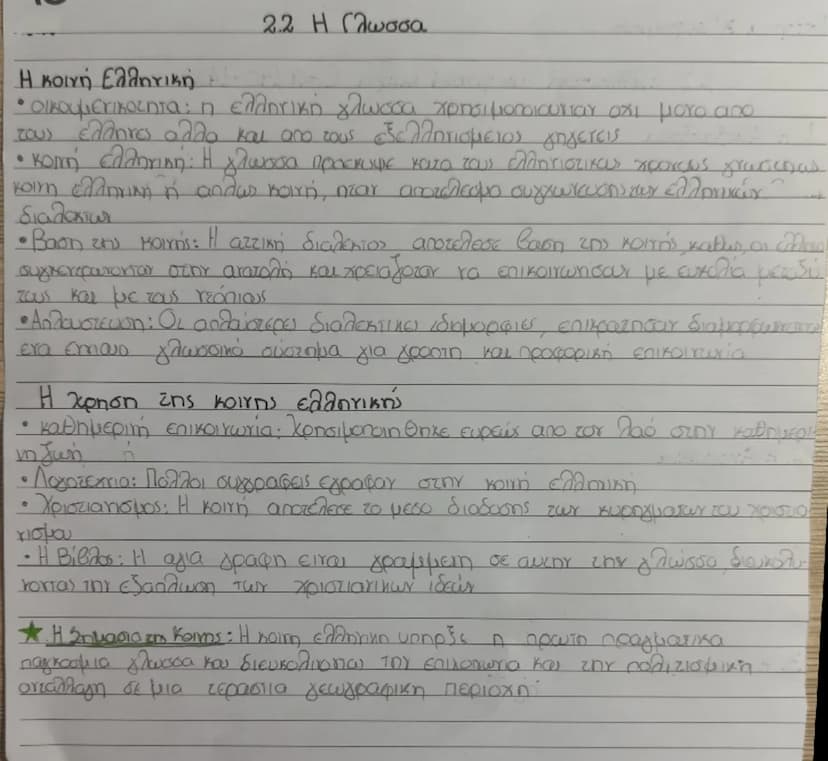 2.2 Η Γλωσσα
Η κοινή Ελληνική
• οικουμενικοτητα: η ελληνική γλωσσα χρησιμοποιουνταν οχι μονο απο
τους έλληνες αλλα και απο τους εξελληνισμενος γηγενεις
• κοινή ελληνική: Η γλωσσα προεκυψε κατα τους ελληνιστικους χρονους
κοινη ελληνικη ή απλως κοινή, ηταν αποτελεσμα συγχωνευσης των ελληνικών
διαλεκτων
• Βαση της κοινής: Η αττική διαλεκτος αποτελεσε βαση της κοινής, καθως οι
στην ανατολή και χρειαζοταν να επικοινωνησουν με ευκολια μεταξυ
τους και με τους ντόπιους
• Απλουστευση: Οι διαλεκτικες ιδιομορφιες, επικρατησαν
ενα ενιαιο γλωσσικό σύστημα για γραπτη και προφορική επικοινωνια
Η χρηση της κοινης ελληνικής
• καθημερινή επικοινωνια: Χρησιμοποιηθηκε ευρεως απο τον λαό στην καθημερι
νη ζωή
• Λογοτεχνια: Πολλοι συγγραφεις εγραφαν στην κοινή ελληνική
• Χριστιανισμος: Η κοινή αποτέλεσε το μεσο διαδοσης των κυρηγματων του χριστια
νισμου
• Η Βίβλος: Η αγια γραφη ειναι γραμμενη σε αυτην την γλώσσα, διευκολυ
νοντας την εξαπλωση των χριστιανικων ιδεών
★ Η Σημασια της Κοινης: Η κοινη ελληνικη υπηρξε η πρωτη πραγματικα
παγκοσμια γλωσσα και διευκολυνοντας την επικοινωνια και την πολιτισμικη
ανταλλαγη σε μια τεραστια γεωγραφικη περιοχή